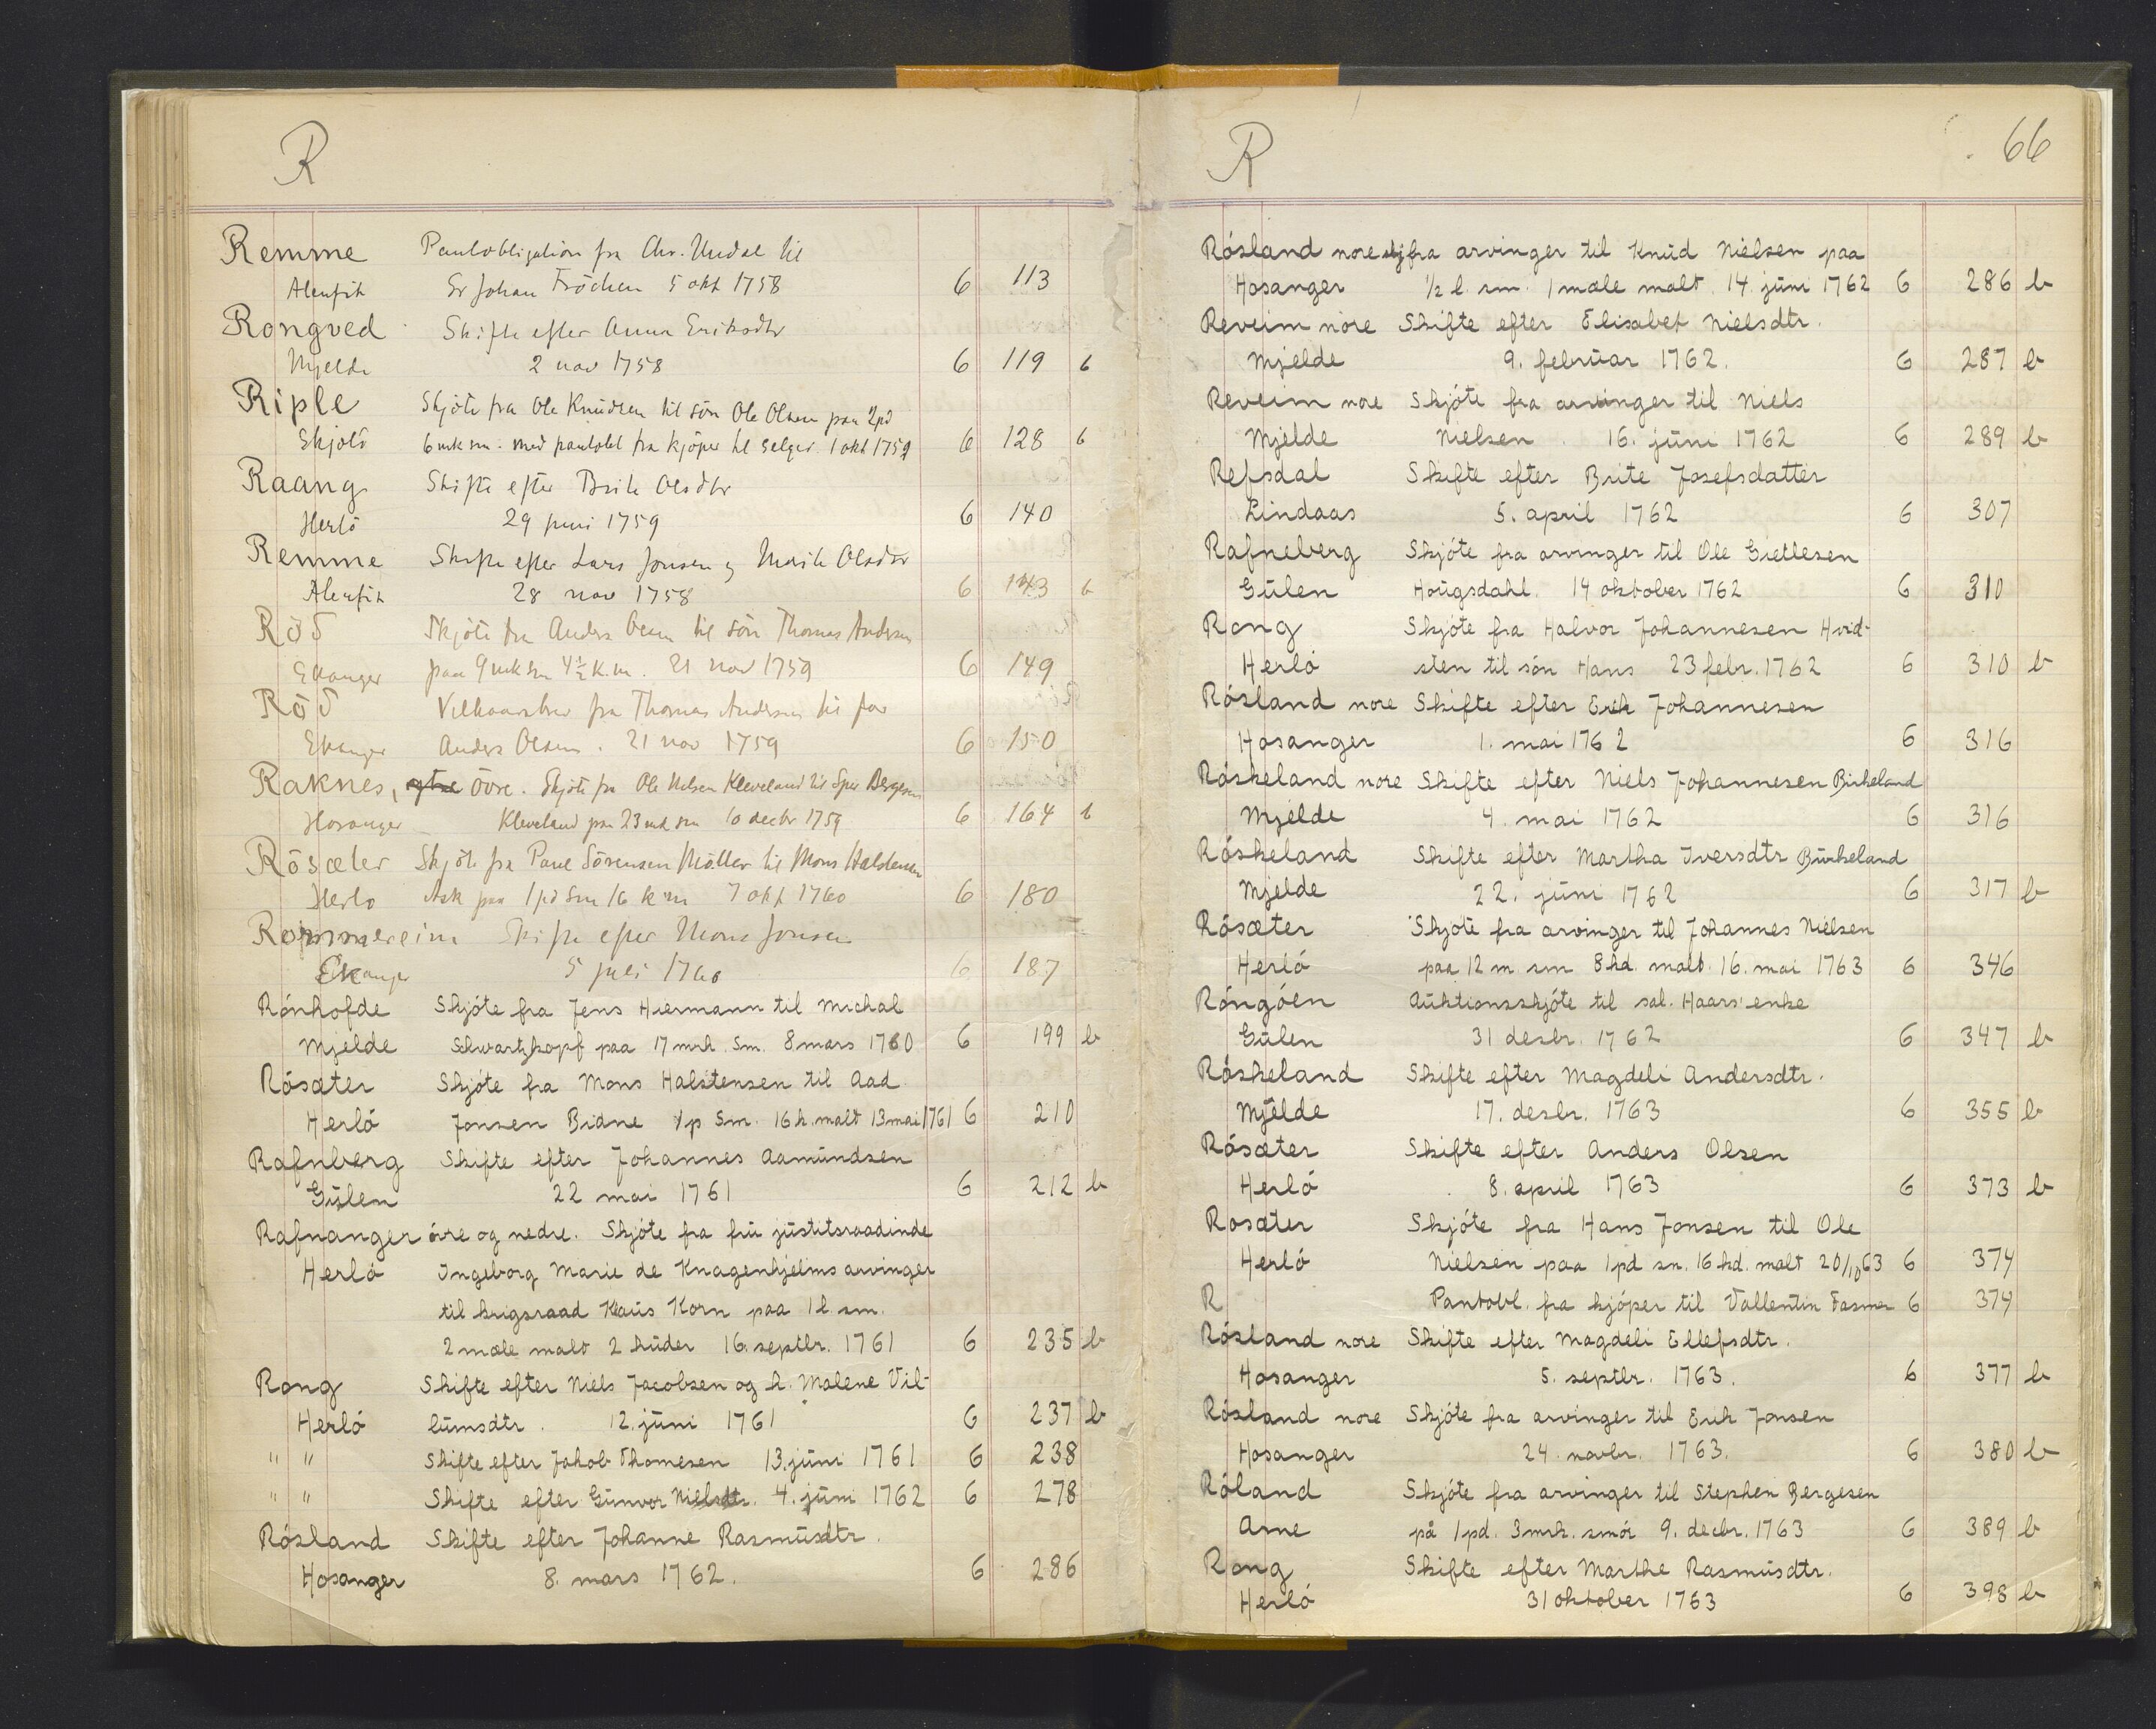 R
Remme Pantobligation fra Chr. Undal til
Alenfit Sr Johan Fröchen 5 okt 1758 6 113
Rongved Skifte efter Anna Eriksdtr
Mjelde 2 nov 1758 6 119 b
Riple Skjöte fra Ole Knudsen til sön Ole Olsen paa 2pd
Skjold 6 mk sm. med pantobl fra kjöper til selger 1 okt 1759 6 128 b
Raang Skifte efter Brite Olsdtr
Herlö 29 juni 1759 6 140
Remme Skifte efter Lars Jonsen og Marite Olsdtr
Alenfit 28 nov 1758 6 143 b
Röd Skjöte fra Anders Olsen til sön Thomas Andersen
Ekanger paa 9 mk sm 4½ k.m. 21 nov 1759 6 149
Röd Vilkaarsbrev fra Thomas Andersen til far
Ekanger Anders Olsen. 21 nov 1759 6 150
Raknes, ytre övre. Skjöte fra Ole Nelsen Kleveland til Sjur Bergesen
Hosanger Kleveland paa 23 mk sm 10 decbr 1759 6 164 b
Rösæter Skjöte fra Paul Sörensen Möller til Mons Haldensen
Herlo Ask paa 1 pd sm 16 k m 7 okt 1760 6 180
Rommereim Skifte efter Mons Jonsen
Ekanger 5 juli 1760 6 187
Rónhofde Skjóte fra Jens Hiermann til Michal
Mjelde Schwartzkopf paa 17 mrk. Sm. 8 mars 1760 6 199 b
Rósæter Skjóte fra Mons Halstensen til Aad
Herló Jonsen Bidne 1p Sm. 16 h. malt 13 mai 1761 6 210
Rafnberg Skifte efter Johannes Aamundsen
Gulen 22 mai 1761 6 212 b
Rafnanger óvre og nedre. Skjóte fra fru justitsraadinde
Herló Ingeborg Marie de Knagenhjelms arvinger
til krigsraad Klaus Korn paa 1 l. sm.
2 mæle malt 2 huder 16. septbr. 1761 6 235 b
Rong Skifte efter Niels Jacobsen og h. Malene Vil-
Herló lumsdtr. 12. juni 1761 6 237 b
" " Skifte efter Jakob Thomesen 13. juni 1761 6 238
" " Skifte efter Gunvor Nielsdtr. 4. juni 1762 6 278
Rósland Skifte efter Johanne Rasmusdtr.
Hosanger 8. mars 1762. 6 286
R 66
Rósland nore skj fra arvinger til Knud Nielsen paa
Hosanger ½ l. sm. 1 mæle malt. 14. juni 1762 6 286 b
Reveim nore Skifte efter Elisabet Nielsdtr.
Mjelde 9. februar 1762. 6 287 b
Reveim nore Skjóte fra arvinger til Niels
Mjelde Nielsen. 16. juni 1762 6 289 b
Refsdal Skifte efter Brite Josefsdatter
Lindaas 5. april 1762 6 307
Rafneberg Skjóte fra arvinger til Ole Gietlesen
Gulen Hougsdahl. 14 oktober 1762 6 310
Rong Skjóte fra Halvor Johannesen Hvid-
Herló sten til són Hans 23 febr. 1762 6 310 b
Rósland nore Skifte efter Erik Johannesen
Hosanger 1. mai 1762 6 316
Róskeland nore Skifte efter Niels Johannesen Birkeland
Mjelde 4. mai 1762 6 316
Róskeland Skifte efter Martha Iversdtr Burkeland
Mjelde 22. juni 1762 6 317 b
Rósæter Skjote fra arvinger til Johannes Nielsen
Herló paa 12 m sm 8 hd. malt. 16. mai 1763 6 346
Róngóen Auktionsskjóte til sal. Haars' enke
Gulen 31 desbr. 1762 6 347 b
Róskeland Skifte efter Magdeli Andersdtr.
Mjelde 17. desbr. 1763 6 355 b
Rósæter Skifte efter Anders Olsen
Herló 8. april 1763 6 373 b
Rosæter Skjóte fra Hans Jonsen til Ole
Herló Nielsen paa 1 pd sm. 16 hd. malt 20/10 63 6 374
R Pantobl. fra kjóper til Vallentin Fasmer 6 374
Rósland nore Skifte efter Magdeli Ellefsdtr.
Hosanger 5. septbr. 1763. 6 377 b
Rósland nore Skjóte fra arvinger til Erik Jonsen
Hosanger 24. novbr. 1763. 6 380 b
Róland Skjóte fra arvinger til Stephen Bergesen
Arne på 1 pd. 3 mrk. smór 9. decbr. 1763 6 389 b
Rong Skifte efter Marthe Rasmusdtr.
Herló 31 oktober 1763 6 398 b